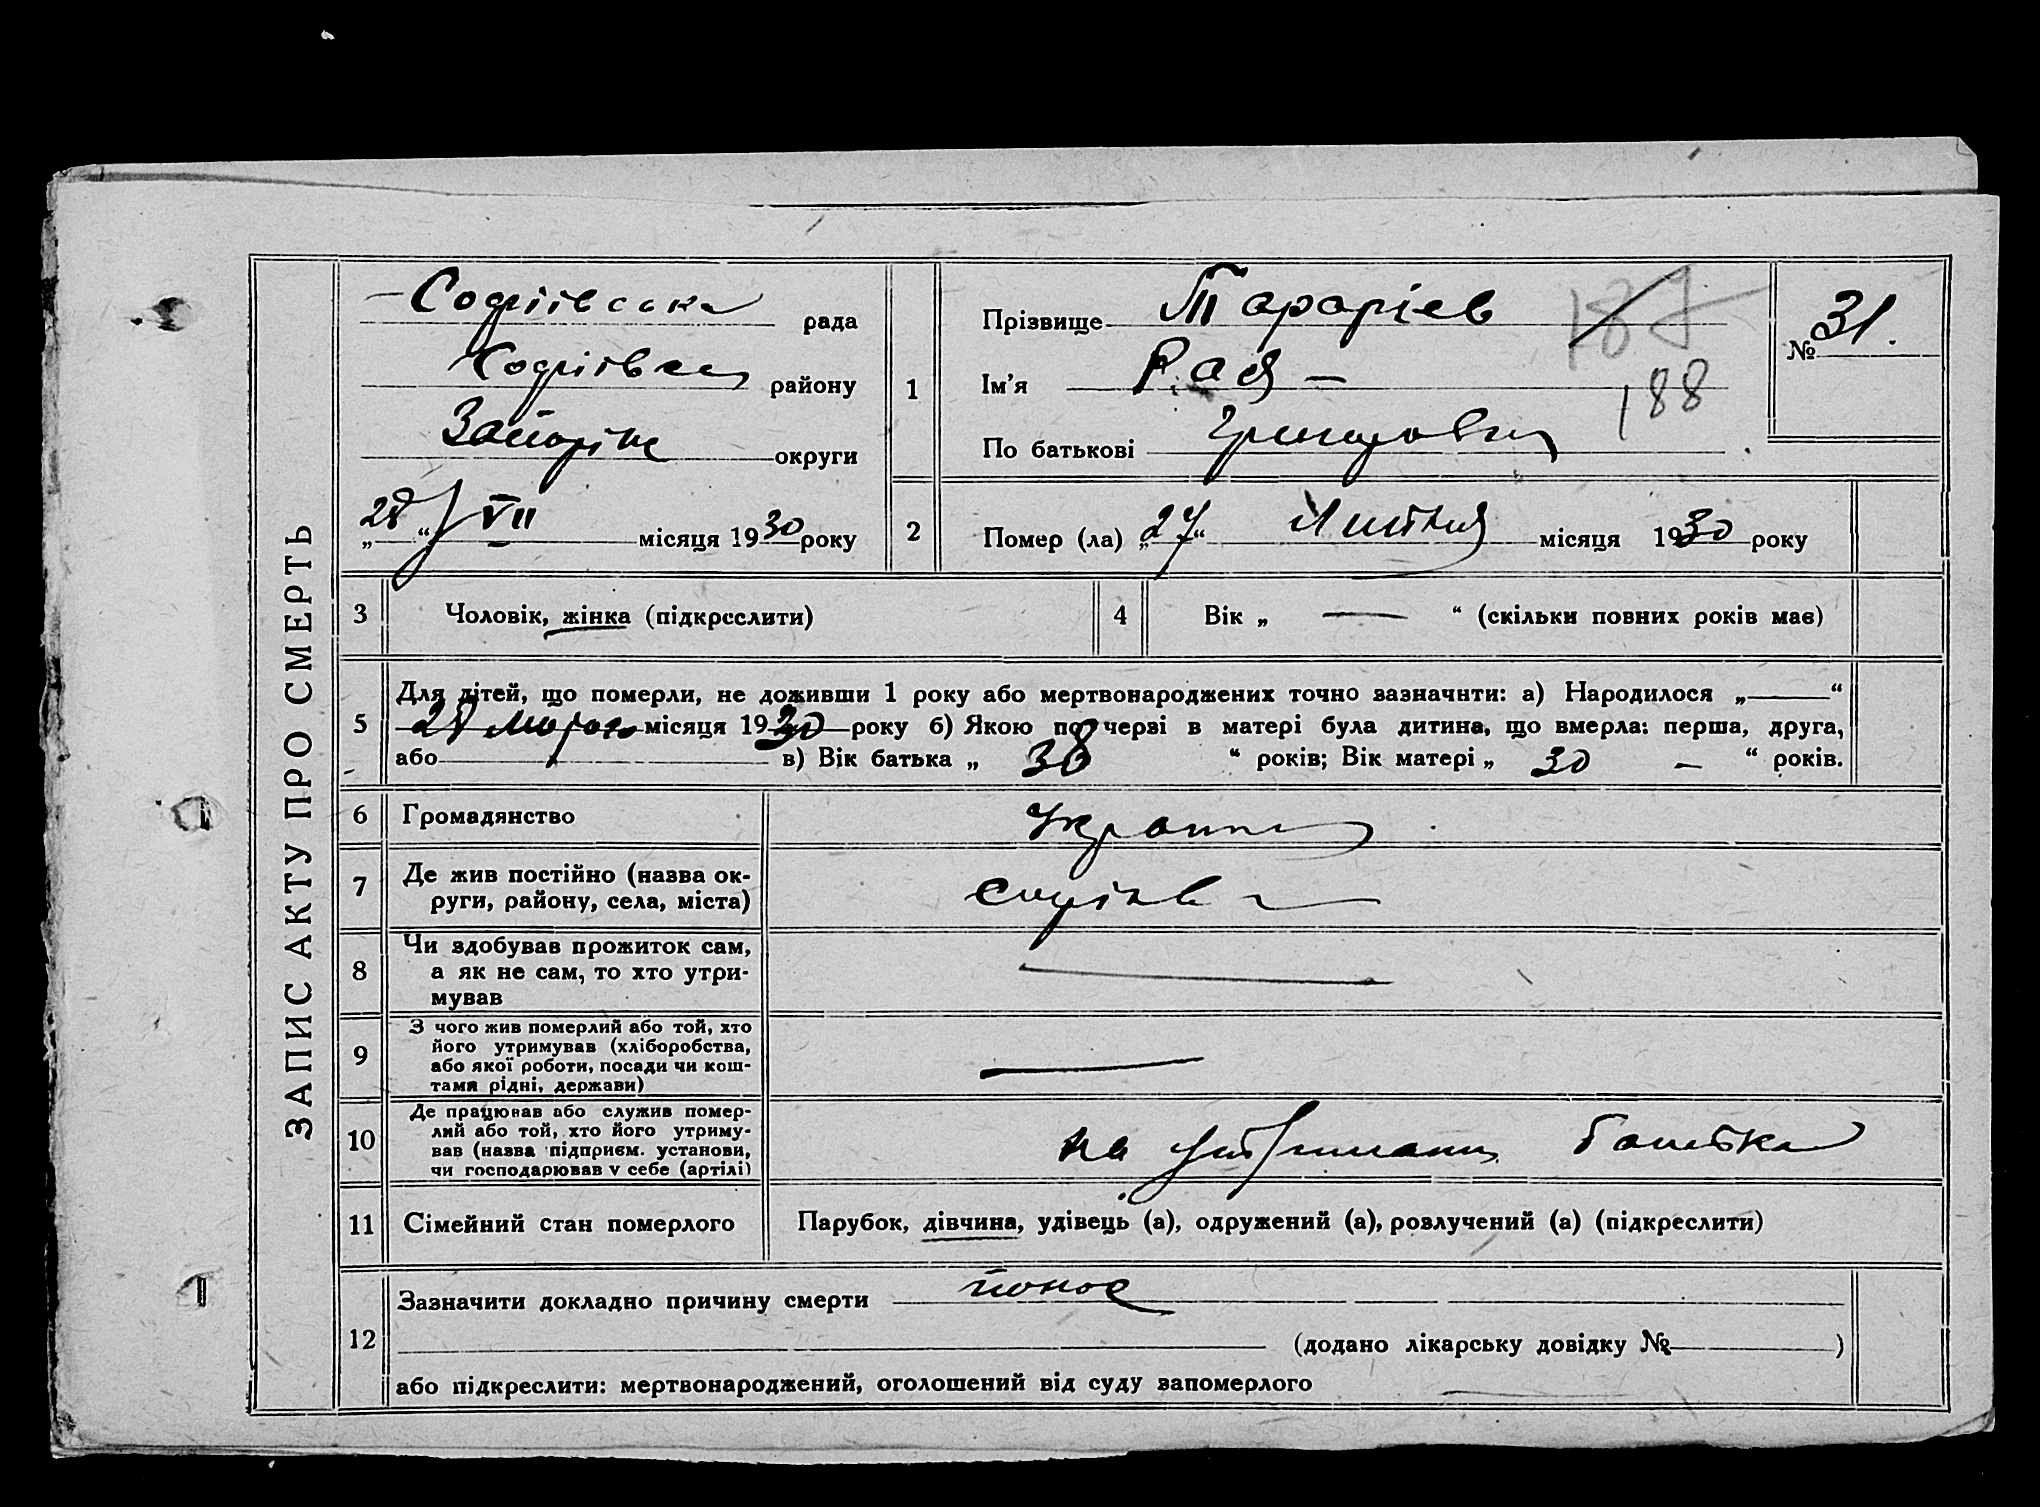 ЗАПИС АКТУ ПРО СМЕРТЬ
Софіївська рада
Софіївка району
Запоріж округи
„28“ VII місяця 1930 року
1
Прізвище Тараріев
Ім'я Рая —
По батькові
187
188
№ 31.
2 Помер (ла) „27“ Липня місяця 1930 року
3 Чоловік, жінка (підкреслити)
4 Вік „ — “ (скільки повних років має)
5 Для дітей, що померли, не доживши 1 року або мертвонароджених точно зазначити: а) Народилося „—“
28 місяця 1930 року б) Якою по черзі в матері була дитина, що вмерла: перша, друга,
або в) Вік батька „ 38 “ років; Вік матері „ 30 — “ років.
6 Громадянство
7 Де жив постійно (назва ок-
руги, району, села, міста)
8 Чи здобував прожиток сам,
а як не сам, то хто утри-
мував
9 З чого жив померлий або той, хто
його утримував (хліборобства,
або якої роботи, посади чи кош-
тами рідні, держави)
10 Де працював або служив помер-
лий або той, хто його утриму-
вав (назва підприєм. установи,
чи господарював у себе (артілі)
на утриманні батька
11 Сімейний стан померлого Парубок, дівчина, удівець (а), одружений (а), розлучений (а) (підкреслити)
12 Зазначити докладно причину смерти понос
(додано лікарську довідку № )
або підкреслити: мертвонароджений, оголошений від суду запомерлого